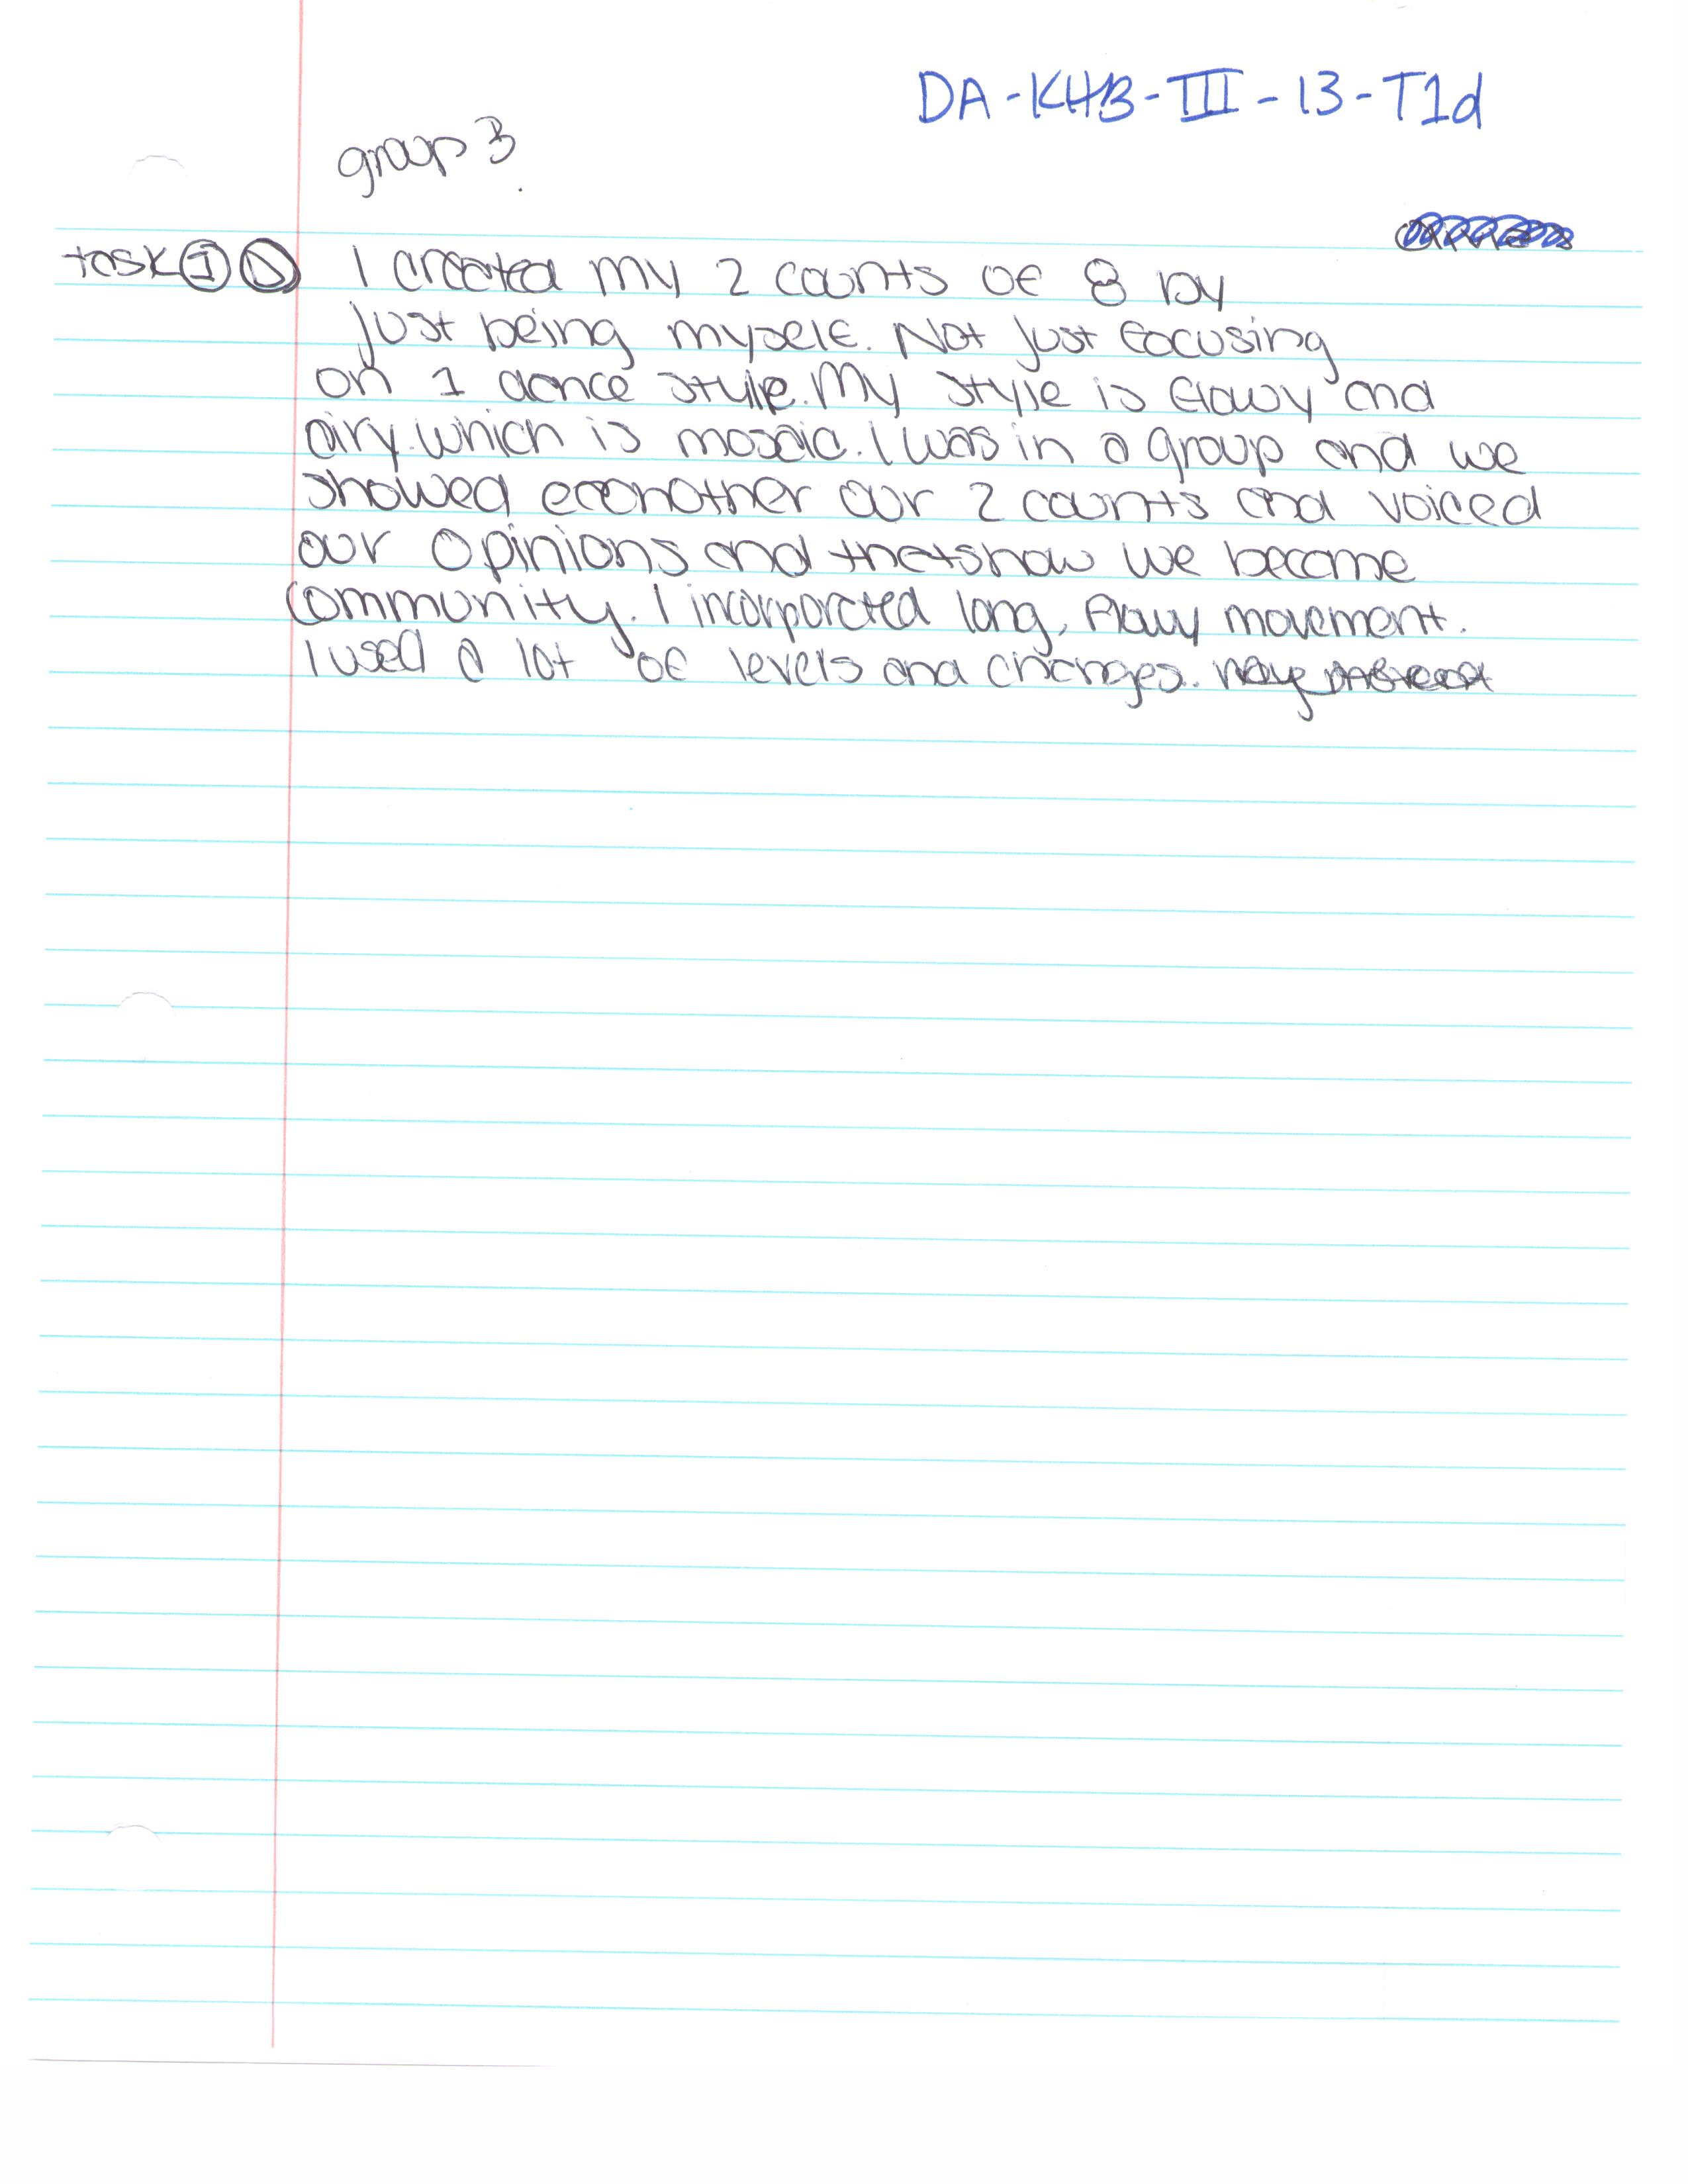 DA-KHB-III-13-T1d
group 3
task 1 D I created my 2 counts of 8 by
just being myself. Not just focusing
on 1 dance style. My style is flowy and
airy. which is mosaic. I was in a group and we
showed econother our 2 counts and voiced
our opinions and thatshow we became
community. I incorporated long, flowy movement.
I used a lot of levels and changes.